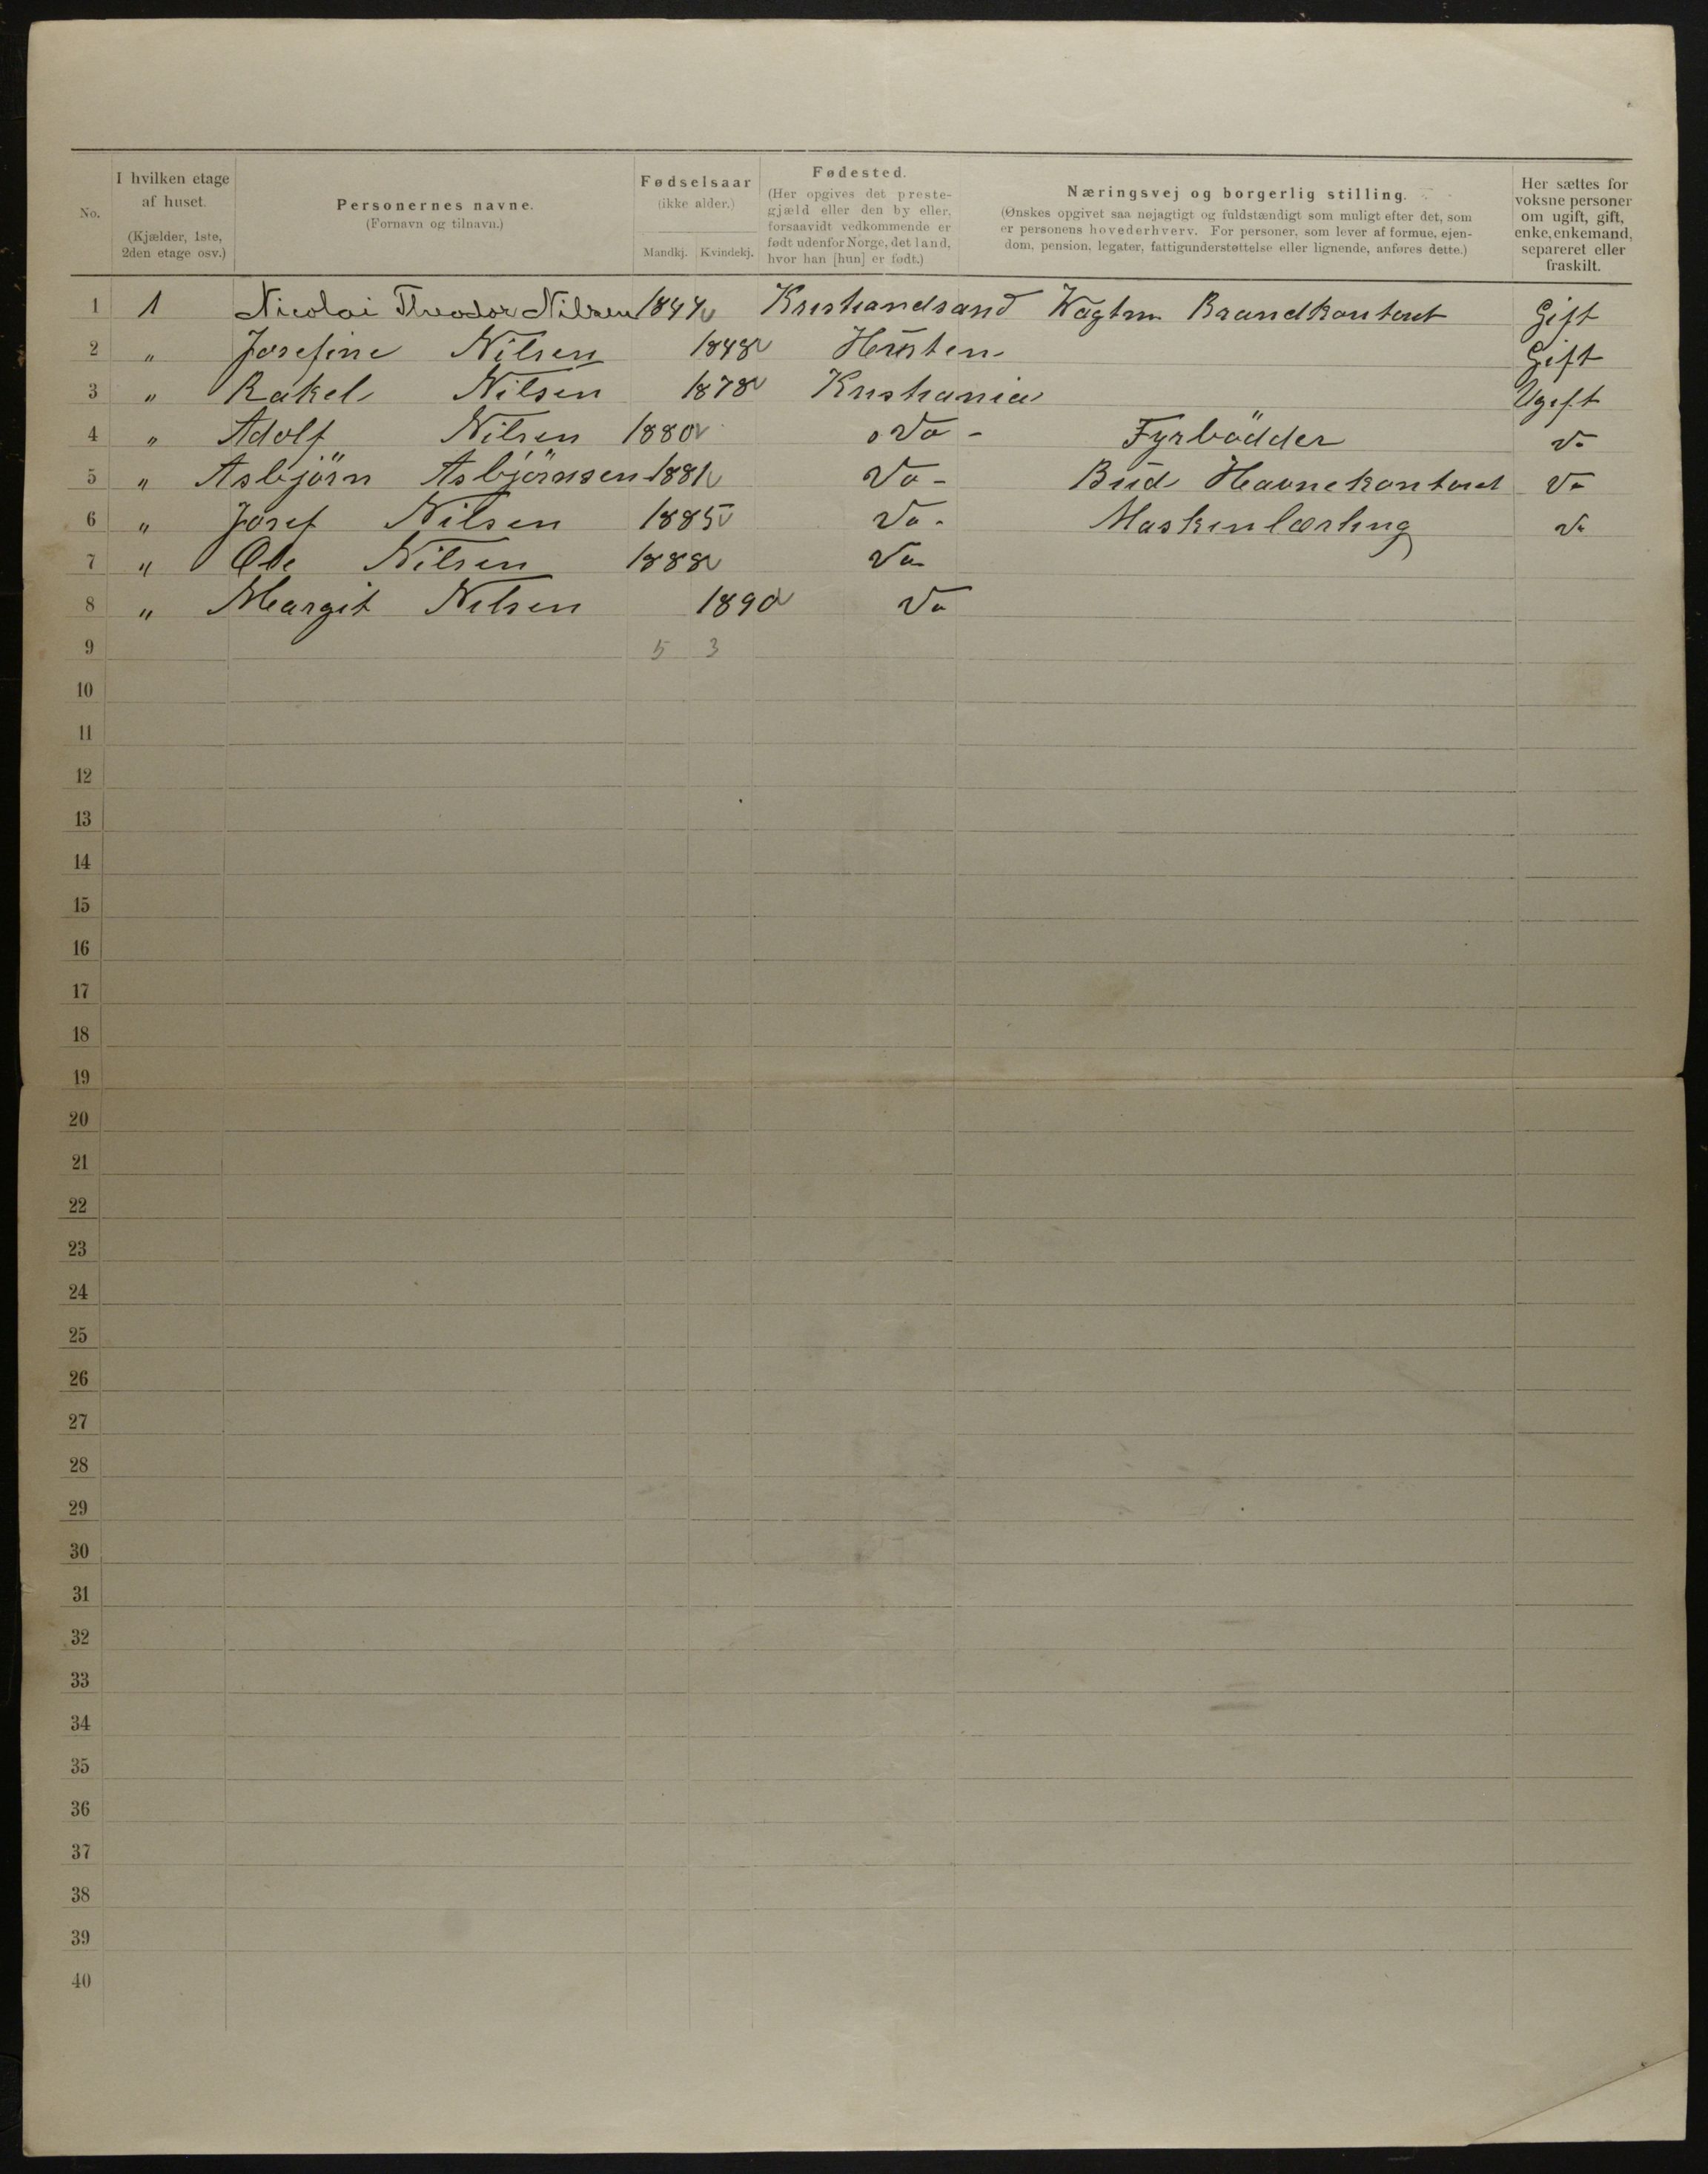 No.
I hvilken etage af huset. (Kjælder, 1ste, 2den etage osv.)
Personernes navne. (Fornavn og tilnavn.)
Fødselsaar (ikke alder.) Mandkj. Kvindekj.
Fødested. (Her opgives det prestegjæld eller den by eller, forsaavidt vedkommende er født udenfor Norge, det land, hvor han [hun] er født.)
Næringsvej og borgerlig stilling. (Ønskes opgivet saa nøjagtigt og fuldstændigt som muligt efter det, som er personens hovederhverv. For personer, som lever af formue, ejendom, pension, legater, fattigunderstøttelse eller lignende, anføres dette.)
Her sættes for voksne personer om ugift, gift, enke, enkemand, separeret eller fraskilt.
1 1 Nicolai Theodor Nilsen Kristiandsand Wagtm Brandkontoret Gift
2 " Josefine Nilsen 1848 Gift
3 " Rakel Nilsen 1878 Kristiania Ugift
4 " Adolf Nilsen 1880 Do - Fyrbödder Do
5 " Asbjörn Asbjörnsen 1881 Do - Bud Havnekontoret Do
6 " Josef Nilsen 1885 Do - Maskinlærling Do
7 " Ole Nilsen 1888 Do
8 " Margit Nilsen 1890 Do
9 5 3
10
11
12
13
14
15
16
17
18
19
20
21
22
23
24
25
26
27
28
29
30
31
32
33
34
35
36
37
38
39
40